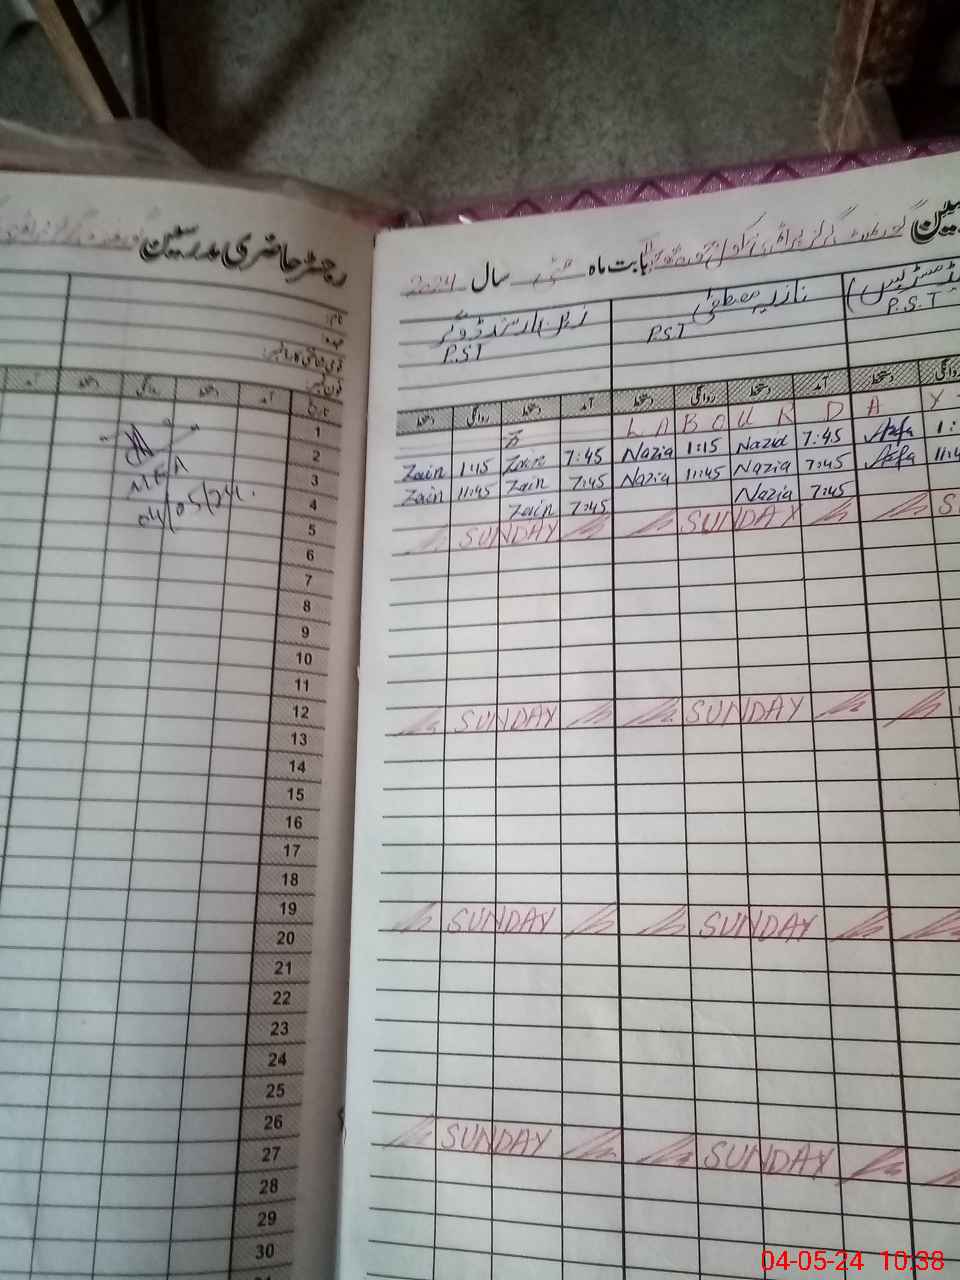 رجسٹر حاضری مدرسین
نام:
عہدہ:
قومی شناختی کارڈ نمبر:
فون نمبر:
آمد دستخط روانگی دستخط آمد تاریخ
1
2
3
4
5
6
7
8
9
10
11
12
13
14
15
16
17
18
19
20
21
22
23
24
25
26
27
28
29
30
04/05/24
بابت ماہ مئی سال 2024
نازیہ مصطفیٰ
P.S.T
PST
P.ST
دستخط روانگی دستخط آمد دستخط روانگی دستخط آمد دستخط روانگی
LABOUR DAY
Zain 1:15 Zain 7:45 Nazia 1:15 Nazia 7:45 Asfa 1:
Zain 11:45 Zain 7:45 Nazia 11:45 Nazia 7:45 Asfa 11:4
Zain 7:45 Nazia 7:45
SUNDAY SUNDAY S
SUNDAY SUNDAY
SUNDAY SUNDAY
SUNDAY SUNDAY
04-05-24 10:38